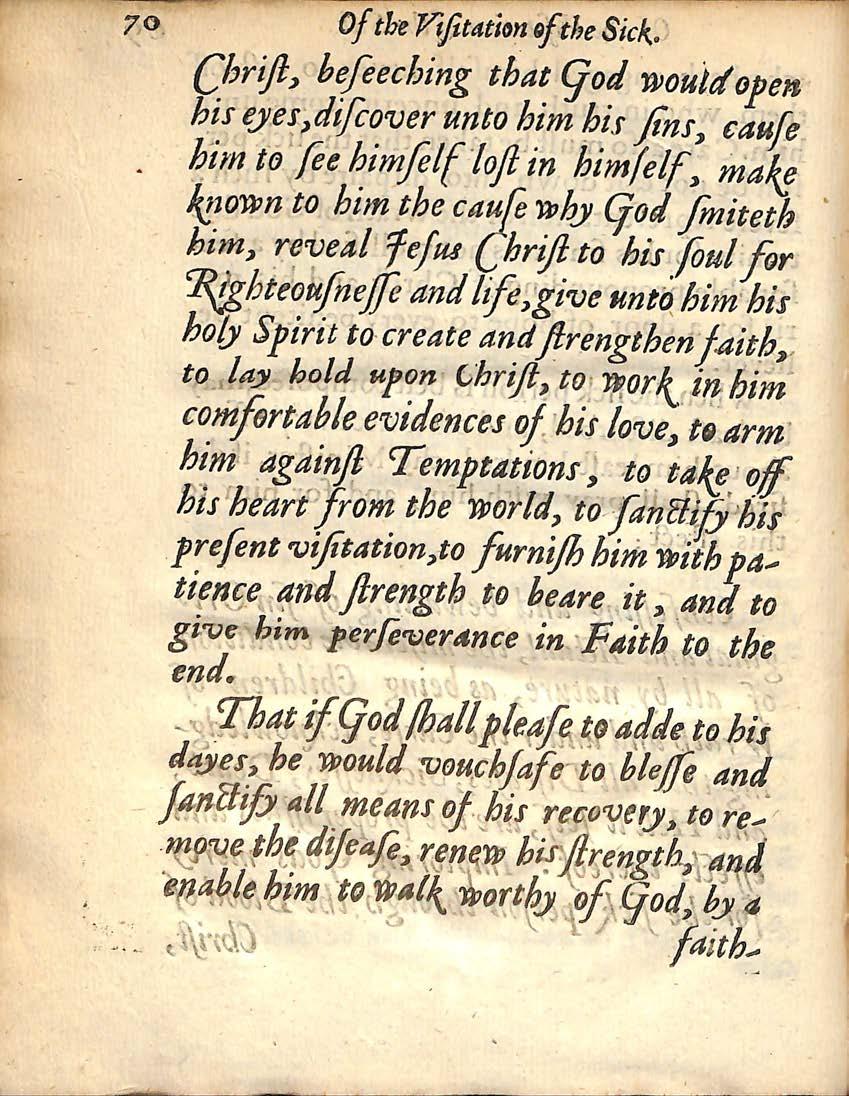 70 Of the Viſitation of the Sick.
Chriſt, beſeeching that God would open
his eyes, diſcover unto him his ſins, cauſe
him to ſee himſelf loſt in himſelf, make
known to him the cauſe why God ſmiteth
him, reveal Jeſus Chriſt to his ſoul for
Righteouſneſſe and life, give unto him his
holy Spirit to create and ſtrengthen faith,
to lay hold upon Chriſt, to work in him
comfortable evidences of his love, to arm
him againſt Temptations, to take off
his heart from the world, to ſanctify his
preſent viſitation, to furniſh him with pa-
tience and ſtrength to beare it, and to
give him perſeverance in Faith to the
end.
That if God ſhall pleaſe to adde to his
dayes, he would vouchſafe to bleſſe and
ſanctify all means of his recovery, to re-
move the diſeaſe, renew his ſtrength, and
enable him to walk worthy of God, by a
faith-